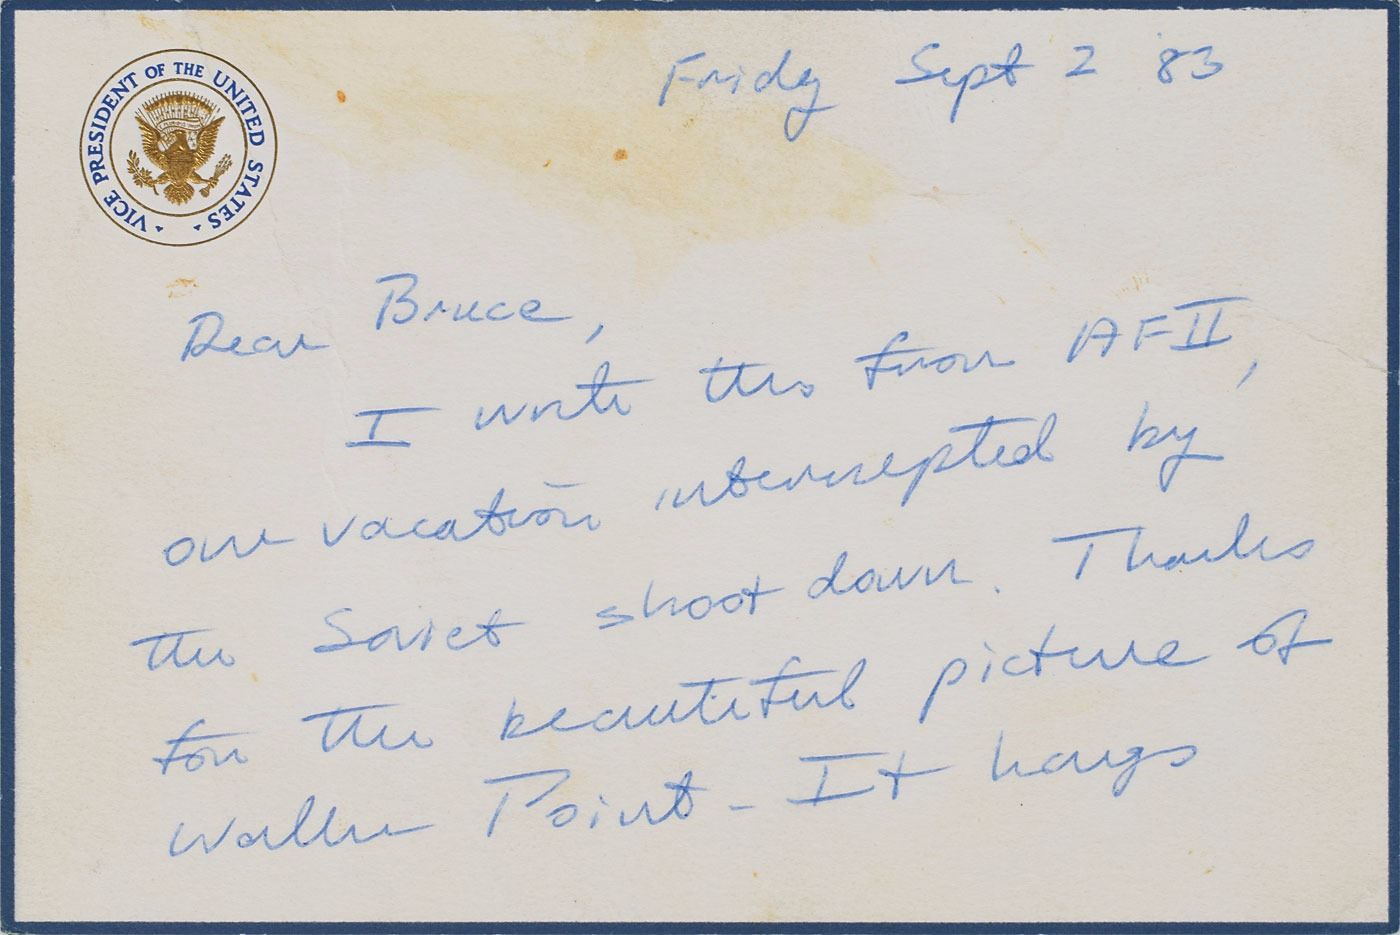 VICE PRESIDENT OF THE UNITED STATES
Friday Sept 2 '83
Dear Bruce,
I write this from AFII,
our vacation interrupted by
the Soviet shoot down. Thanks
for the beautiful picture of
Walker Point - It hangs